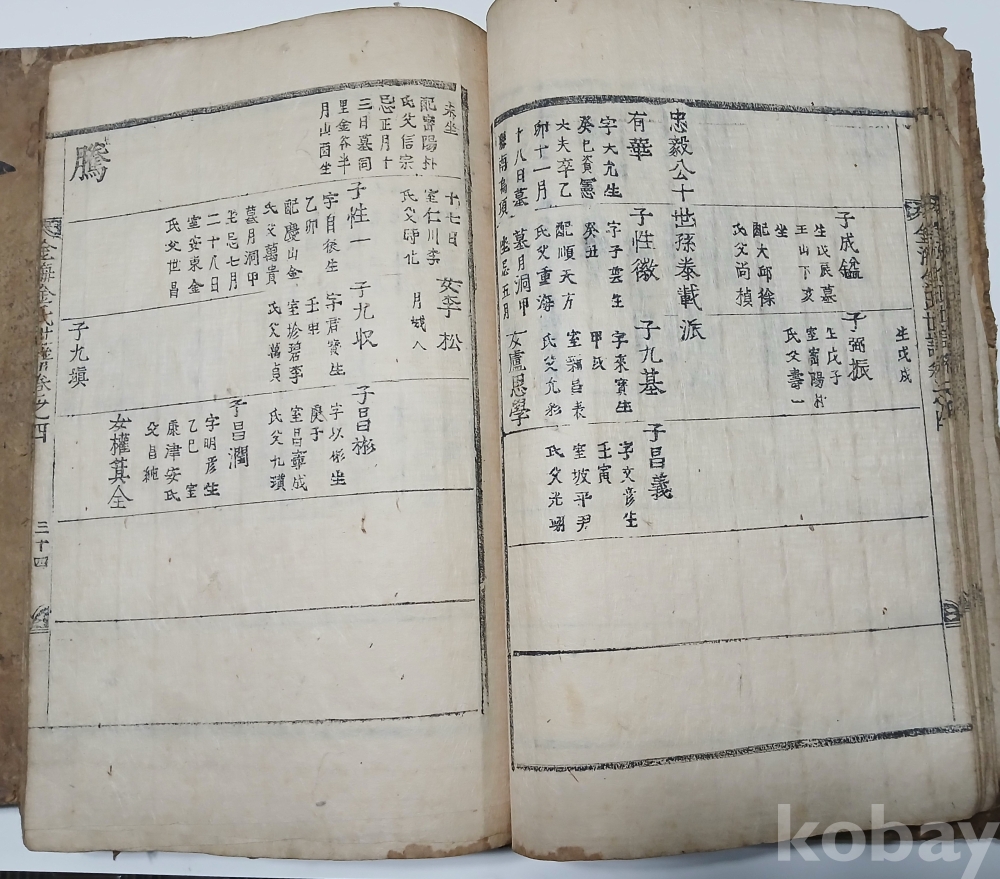 忠毅公十世孫泰載派
有華
字大允生
癸巳資憲
大夫卒乙
卯十一月
十八日墓
子成鎰
生戊辰墓
玉山下亥
坐
配大邱徐
氏父尚楨
子性徽
字子雲生
癸丑
配順天方
氏父重海
墓月洞甲
坐忌五月
生戊戌
子弼振
生戊子
室密陽朴
氏父壽一
子九基
字來寶生
甲戌
氏父允彩
女盧思學
子昌義
字文彦生
壬寅
室坡平尹
氏父光明
未坐
配密陽朴
氏父信宗
忌正月十
三日墓同
里金谷半
月山酉坐
騰
十七日
室仁川李
氏父時化
子性一
字自後生
乙卯
配慶山金
氏父萬貴
墓月洞甲
坐忌七月
二十八日
室安東金
氏父世昌
女李松
月城人
子九收
字君寶生
壬申
室珍碧李
氏父萬貞
子九塡
子昌彬
字以彬生
庚子
室昌寧成
氏父九瀆
子昌潤
字明彦生
乙巳 室
康津安氏
父昌純
女權箕全
金海金氏世譜卷之四
三十四
kobay